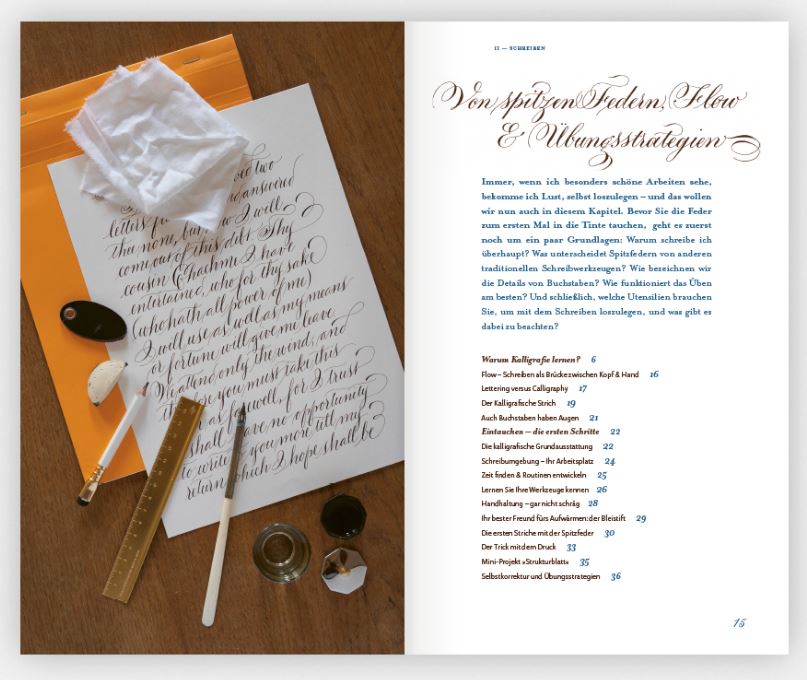 two
answered
letters
thee none, but now I will
come out of this debt. Thy
cousin I have
entertained, who for thy sake
(who hath all power of me)
I will use as well as my means
or fortune will give me leave
We attend only the wind, and
you must take this
as farewell, for I trust
shall have no opportunity
to write you more till my
return, which I hope shall be
II — SCHREIBEN
Von spitzen Federn, Flow
& Übungsstrategien
Immer, wenn ich besonders schöne Arbeiten sehe,
bekomme ich Lust, selbst loszulegen – und das wollen
wir nun auch in diesem Kapitel. Bevor Sie die Feder
zum ersten Mal in die Tinte tauchen, geht es zuerst
noch um ein paar Grundlagen: Warum schreibe ich
überhaupt? Was unterscheidet Spitzfedern von anderen
traditionellen Schreibwerkzeugen? Wie bezeichnen wir
die Details von Buchstaben? Wie funktioniert das Üben
am besten? Und schließlich, welche Utensilien brauchen
Sie, um mit dem Schreiben loszulegen, und was gibt es
dabei zu beachten?
Warum Kalligrafie lernen? 6
Flow – Schreiben als Brücke zwischen Kopf & Hand 16
Lettering versus Calligraphy 17
Der Kalligrafische Strich 19
Auch Buchstaben haben Augen 21
Eintauchen – die ersten Schritte 22
Die kalligrafische Grundausstattung 22
Schreibumgebung – Ihr Arbeitsplatz 24
Zeit finden & Routinen entwickeln 25
Lernen Sie Ihre Werkzeuge kennen 26
Handhaltung – gar nicht schräg 28
Ihr bester Freund fürs Aufwärmen: der Bleistift 29
Die ersten Striche mit der Spitzfeder 30
Der Trick mit dem Druck 33
Mini-Projekt »Strukturblatt« 35
Selbstkorrektur und Übungsstrategien 36
15